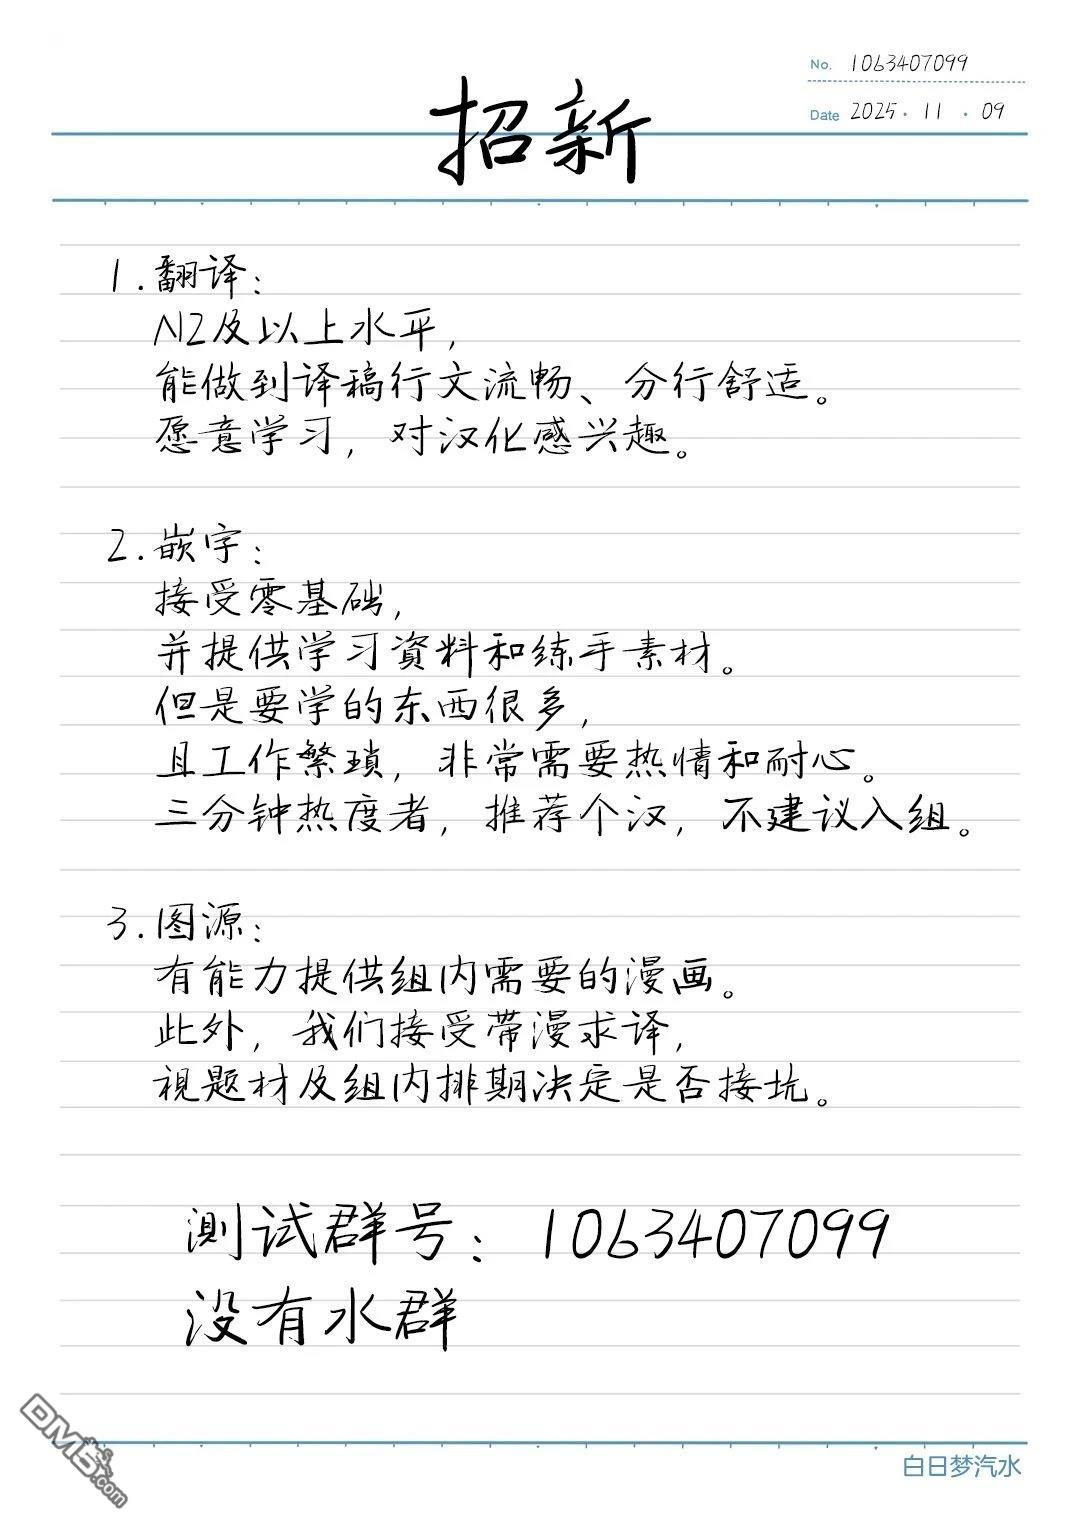 No. 1063407099
Date 2025·11·09
招新
1.翻译:
N2及以上水平,
能做到译稿行文流畅、分行舒适。
愿意学习,对汉化感兴趣。
2.嵌字:
接受零基础,
并提供学习資料和练手素材。
但是要学的东西很多,
且工作繁瑣,非常需要热情和耐心。
三分钟热度者,推荐个汉,不建议入组。
3.图源:
有能力提供组内需要的漫画。
此外,我们接受带漫求译,
視题材及组内排期决定是否接坑。
测试群号:1063407099
没有水群
白日梦汽水